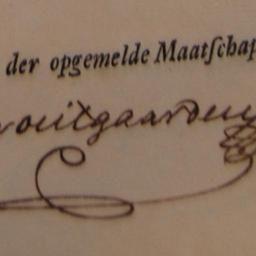 der opgemelde Maatſchap
outgaarden